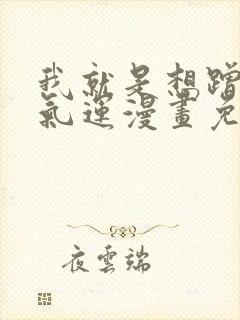 我就是想蹭
氣運漫畫免
夜雲端